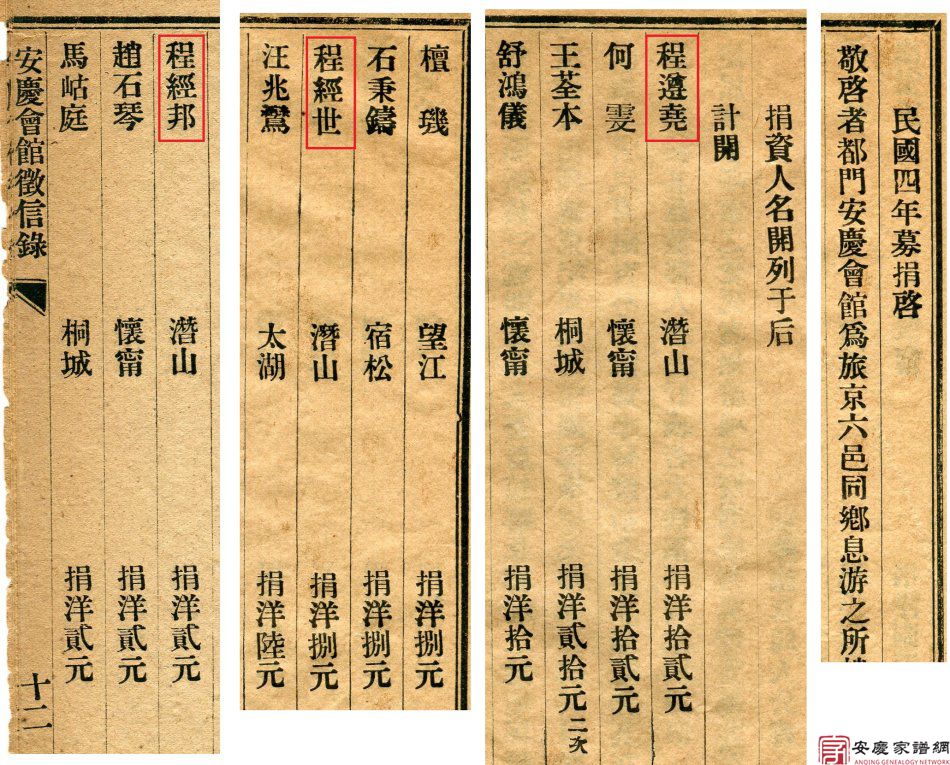 民國四年募捐啓
敬啓者都門安慶會館爲旅京六邑同鄉息游之所
捐資人名開列于后
計開
程遵堯 潛山 捐洋拾貳元
何雯 懷甯 捐洋拾貳元
王荃本 桐城 捐洋貳拾元二次
舒鴻儀 懷甯 捐洋拾元
檀璣 望江 捐洋捌元
石秉鑄 宿松 捐洋捌元
程經世 潛山 捐洋捌元
汪兆鸞 太湖 捐洋陸元
程經邦 潛山 捐洋貳元
趙石琴 懷甯 捐洋貳元
馬岵庭 桐城 捐洋貳元
安慶會館徵信錄 十二
安慶家譜網
ANQING GENEALOGY NETWORK